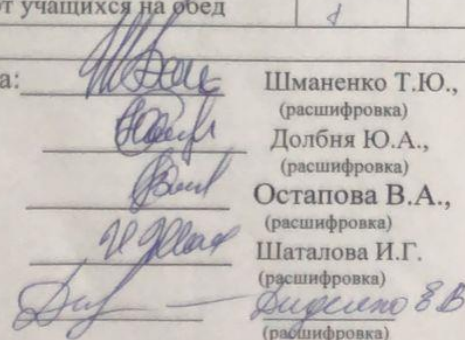 от учащихся на обед
а: Шманенко Т.Ю.,
(расшифровка)
Долбня Ю.А.,
(расшифровка)
Остапова В.А.,
(расшифровка)
Шаталова И.Г.
(расшифровка)
Диденко Е В
(расшифровка)